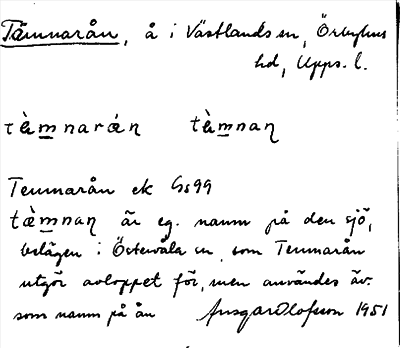 Tämnarån, å i Västlands sn, Örbyhus
hd, Upps. l.
tä̀mnarán tä̀mnaɳ
Temnarån ek Gs99
tä̀mnaɳ är eg. namn på den sjö,
belägen i Östervåla sn, som Temnarån
utgör avloppet för, men användes äv.
som namn på ån Ansgar Olofsson 1951